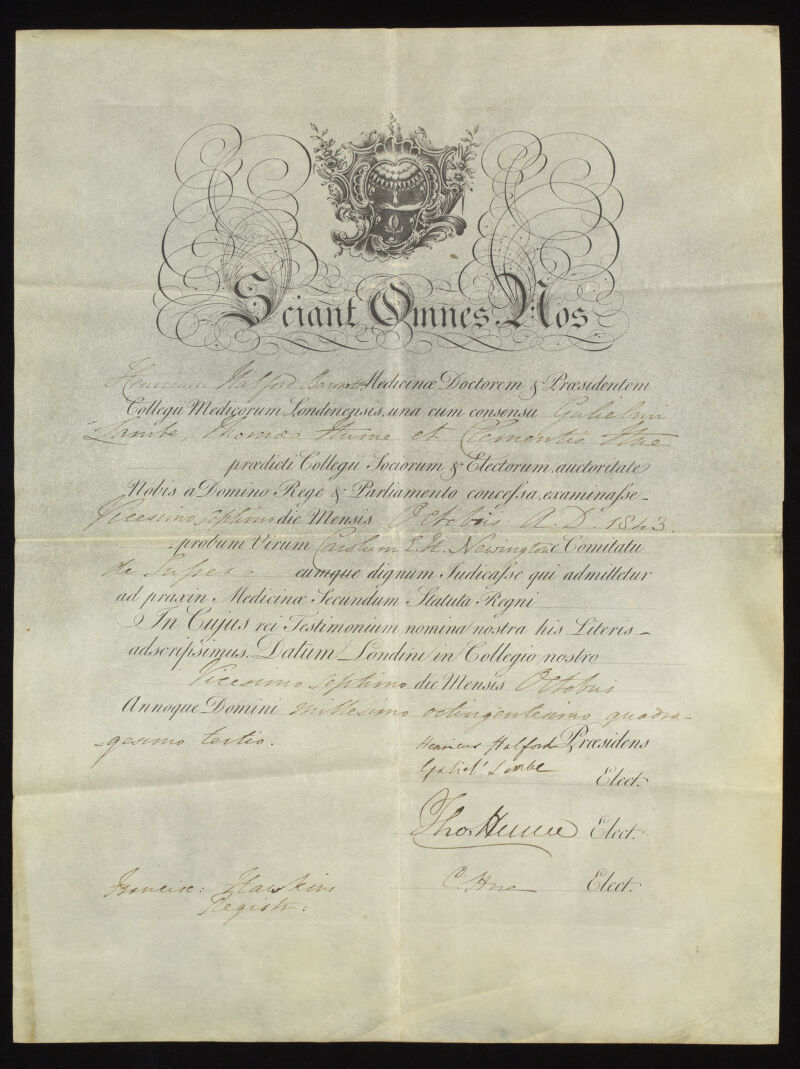 Sciant Omnes Nos
Henricum Halford Baronett Medicinæ Doctorem & Præsidentem
Collegii Medicorum Londinensis, una cum consensu Gulielmi
Lambe, Thomæ Hume et Clementis Hue
prædicti Collegii Sociorum & Electorum, auctoritate
Nobis a Domino Rege & Parliamento concessa, examinasse
Vicesimo septimo die Mensis Octobris A.D. 1843.
probum Virum Carolum E. H. Newington e Comitatu
de Sussex eumque dignum Iudicasse qui admittetur
ad praxin Medicinæ Secundum Statuta Regni
In Cujus rei Testimonium nomina nostra his Literis
adscripsimus. Datum Londini in Collegio nostro
Vicesimo septimo die Mensis Octobris
Annoque Domini millesimo octingentesimo quadra-
-gesimo tertio. Henricus Halford Præsidens
Guliel' Lambe Elect.
Tho. Hume Elect.
Francisc: Hawkins C. Hue Elect.
Registr: